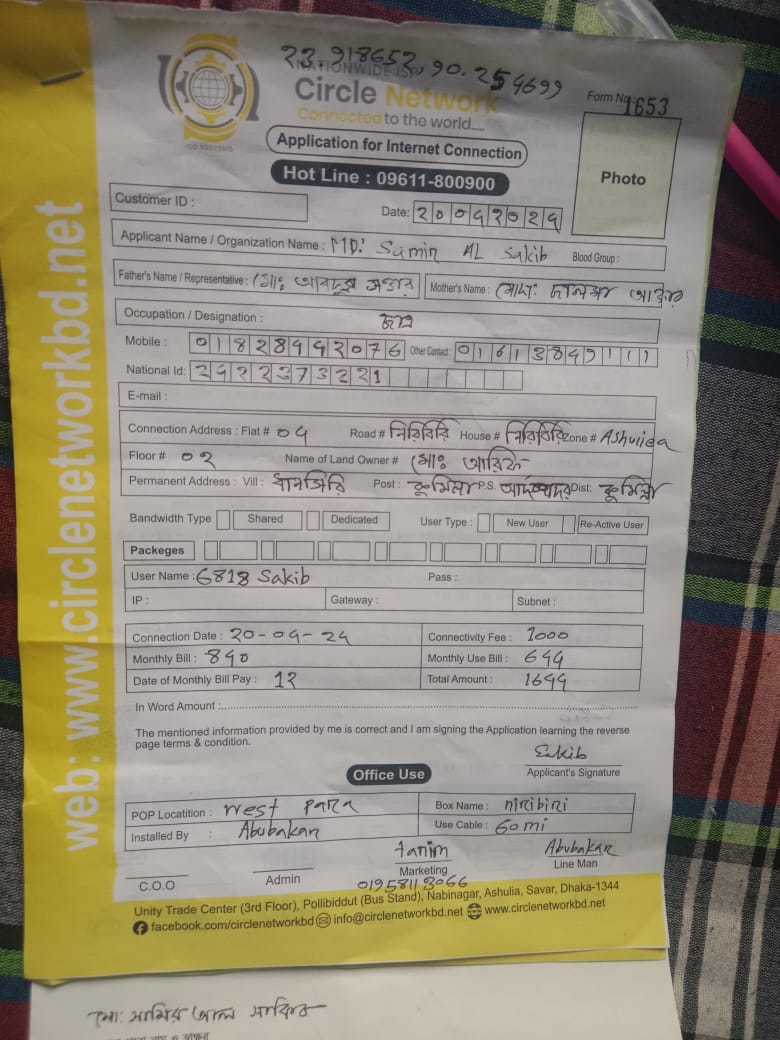 23.918652, 90.254699
NATIONWIDE ISP
Circle Network
Connected to the world.....
ISO 9001:2015
Form No: 1653
Application for Internet Connection
Hot Line : 09611-800900
Photo
Customer ID :
Date: 20042024
Applicant Name / Organization Name : MD: Samir AL Sakib Blood Group :
Father's Name / Representative : মোঃ আবদুস সত্তার Mother's Name : মোসা:
Occupation / Designation : ছাত্র
Mobile : 01828442076 Other Contact 01613849111
National Id: 2422373221
E-mail :
Connection Address : Flat # 04 Road # নিরিবিরি House # নিরিবিরি Zone # Ashulia
Floor # 02 Name of Land Owner # মোঃ আরিফ
Permanent Address : Vill : ধানসিরি Post : কুমিল্লা P.S. Dist: কুমিল্লা
Bandwidth Type Shared Dedicated User Type : New User Re-Active User
Packeges
User Name : 6818 Sakib Pass :
IP : Gateway : Subnet :
Connection Date : 20-04-24 Connectivity Fee : 1000
Monthly Bill : 840 Monthly Use Bill : 644
Date of Monthly Bill Pay : 12 Total Amount : 1644
In Word Amount :
The mentioned information provided by me is correct and I am signing the Application learning the reverse
page terms & condition.
Sakib
Applicant's Signature
Office Use
POP Locatition : West Para Box Name : niribiri
Installed By : Abubakar Use Cable : 60 mi
Tanim Abubakar
C.O.O Admin Marketing Line Man
01958113066
Unity Trade Center (3rd Floor), Pollibiddut (Bus Stand), Nabinagar, Ashulia, Savar, Dhaka-1344
facebook.com/circlenetworkbd info@circlenetworkbd.net www.circlenetworkbd.net
web: www.circlenetworkbd.net
মো: সামির আল সাকিব